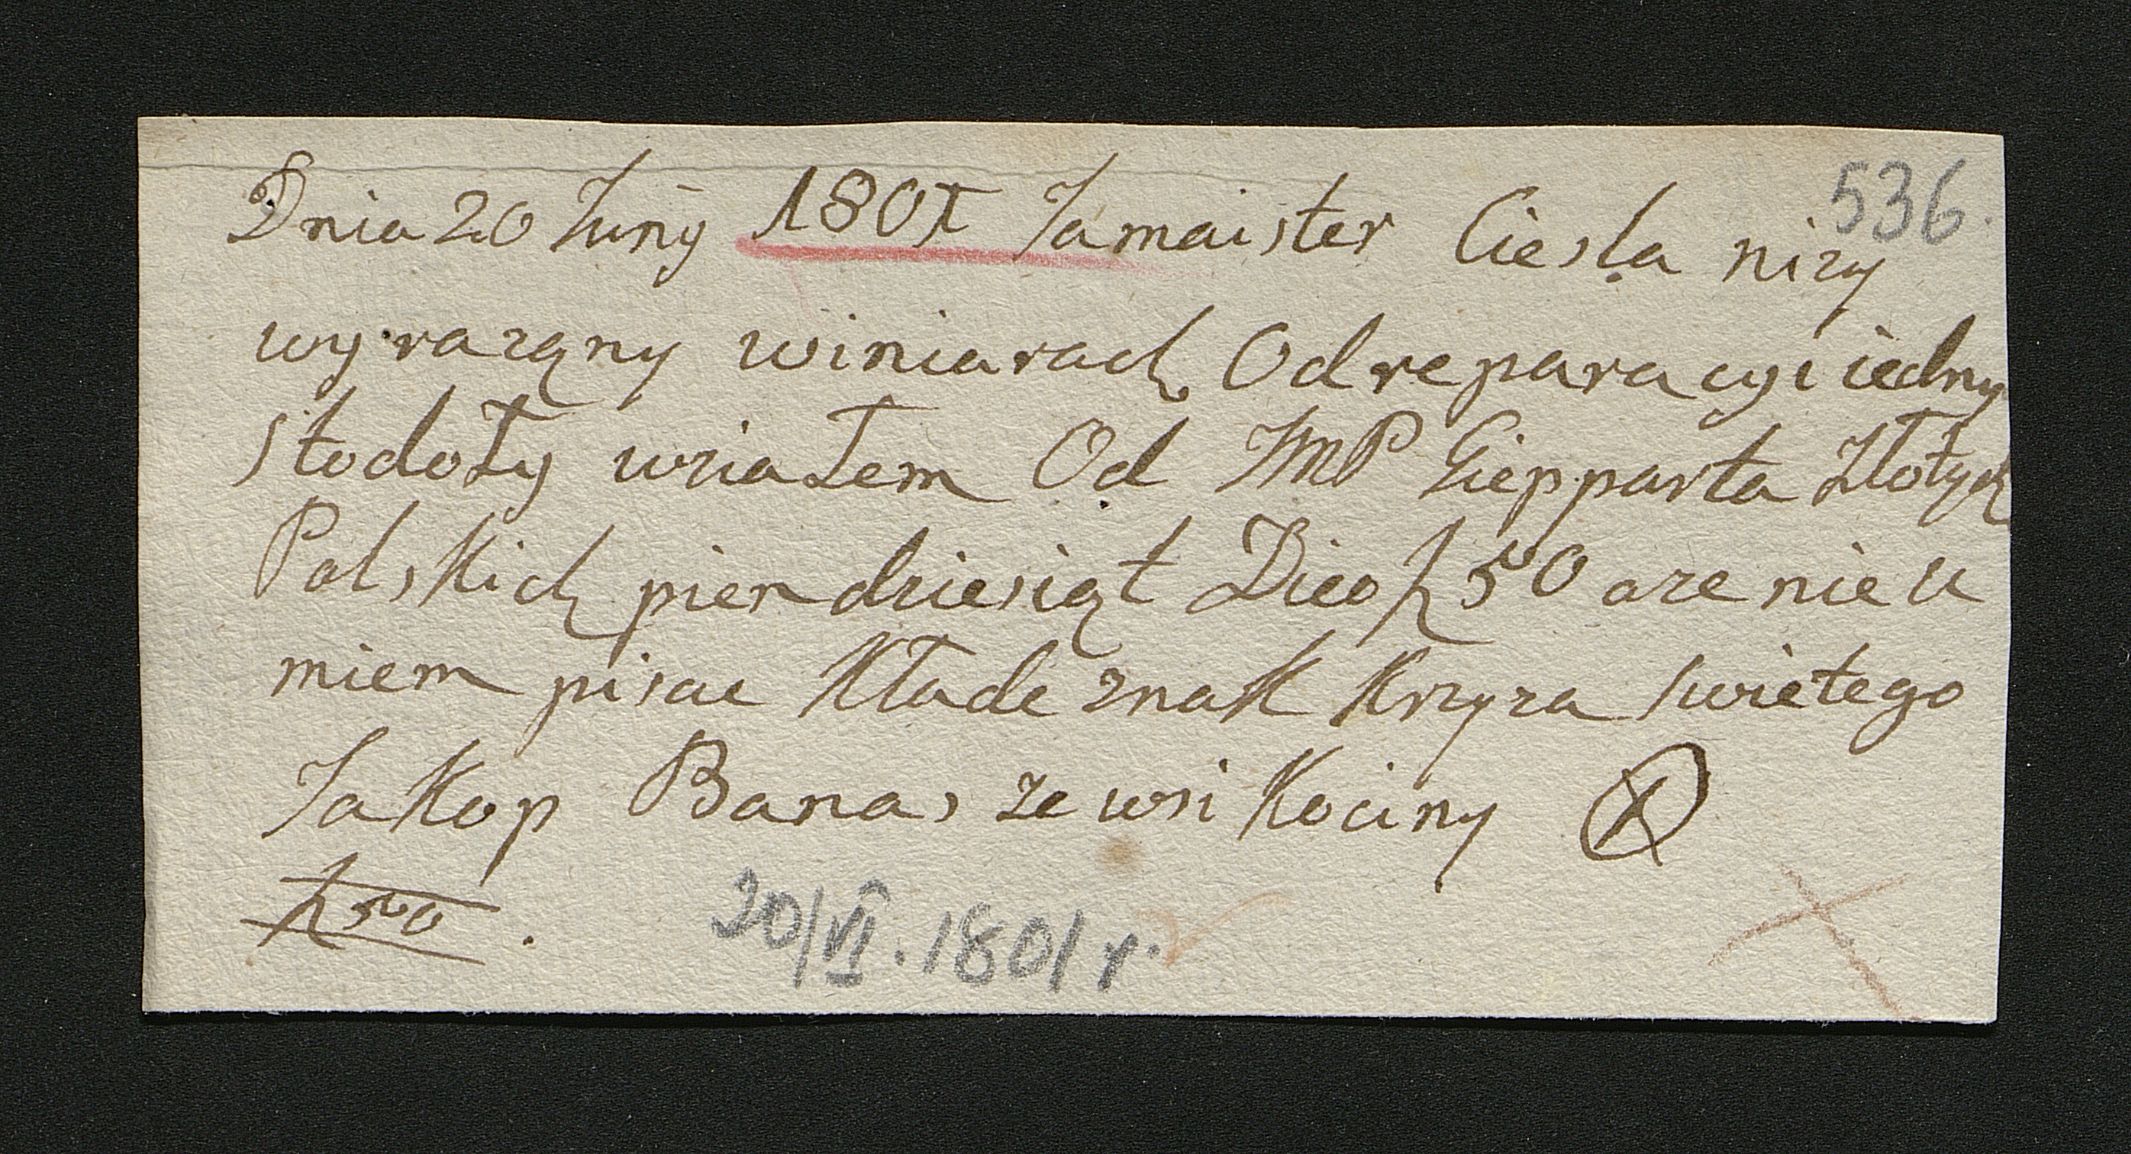 536.
Dnia 20 Juny 1801 Ja maister Ciesla nizy
wyrazony winiarach Od reparacyi iedny
stodoły wziałem Od JMP Giepparta Złotych
Polskich piendziesiąt Dico 50 aze nie u
miem pisac Kłade znak Krzyza swietego
Jakop Banas ze wsi Kociny X
50.
20/VI.1801 r.